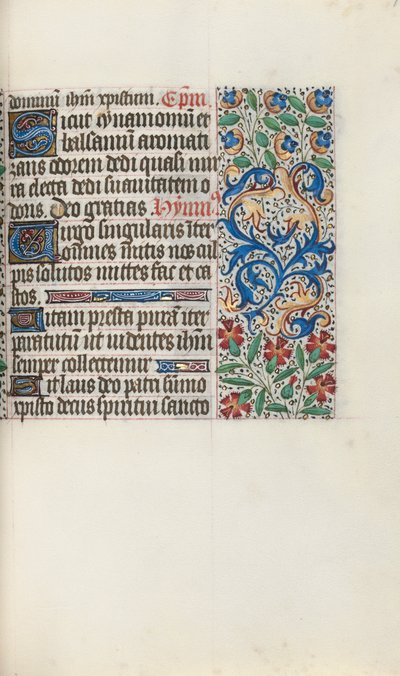 dominū ihm̄ xpistum. Cap̄m
Sicut cynamomū et
balsamū aromati
zans odorem dedi quasi mir
ra electa dedi suauitatem o
doris. Deo gratias. Hymn⁹
Uirgo singularis iter
omnes mitis nos cul
pis solutos mittes fac et ca
stos.
Uitam presta purā iter
para tutū ut uidentes ihm
semper collectemur
Sit laus deo patri sūmo
xpisto decus spiritui sancto